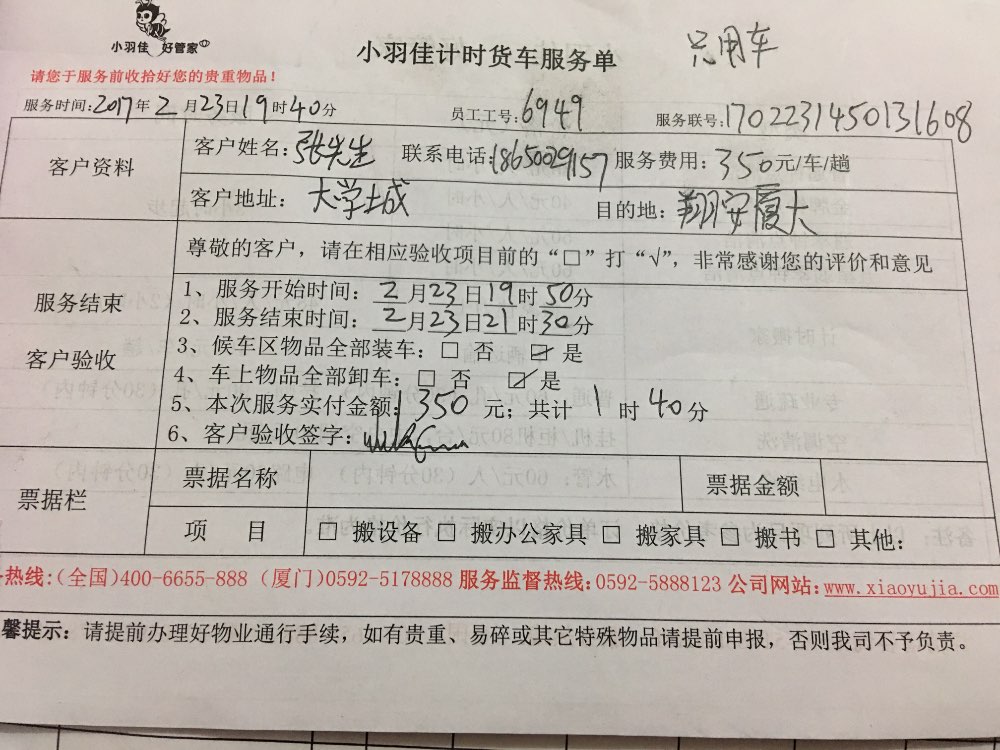 小羽佳 好管家
小羽佳计时货车服务单
只用车
请您于服务前收拾好您的贵重物品！
服务时间:2017年2月23日19时40分
员工工号:6949
服务联号:1702231450131608
客户资料
客户姓名:张先生 联系电话:18650029157 服务费用:350元/车/趟
客户地址: 大学城 目的地: 翔安厦大
服务结束
客户验收
尊敬的客户，请在相应验收项目前的“□”打“√”，非常感谢您的评价和意见
1、服务开始时间: 2月23日19时50分
2、服务结束时间: 2月23日21时30分
3、候车区物品全部装车: □ 否 ☑ 是
4、车上物品全部卸车: □ 否 ☑ 是
5、本次服务实付金额: 350 元; 共计 1 时 40 分
6、客户验收签字:
票据栏
票据名称 票据金额
项 目 □ 搬设备 □ 搬办公家具 □ 搬家具 □ 搬书 □ 其他:
热线:(全国)400-6655-888 (厦门)0592-5178888 服务监督热线:0592-5888123 公司网站:www.xiaoyujia.com
馨提示: 请提前办理好物业通行手续，如有贵重、易碎或其它特殊物品请提前申报，否则我司不予负责。